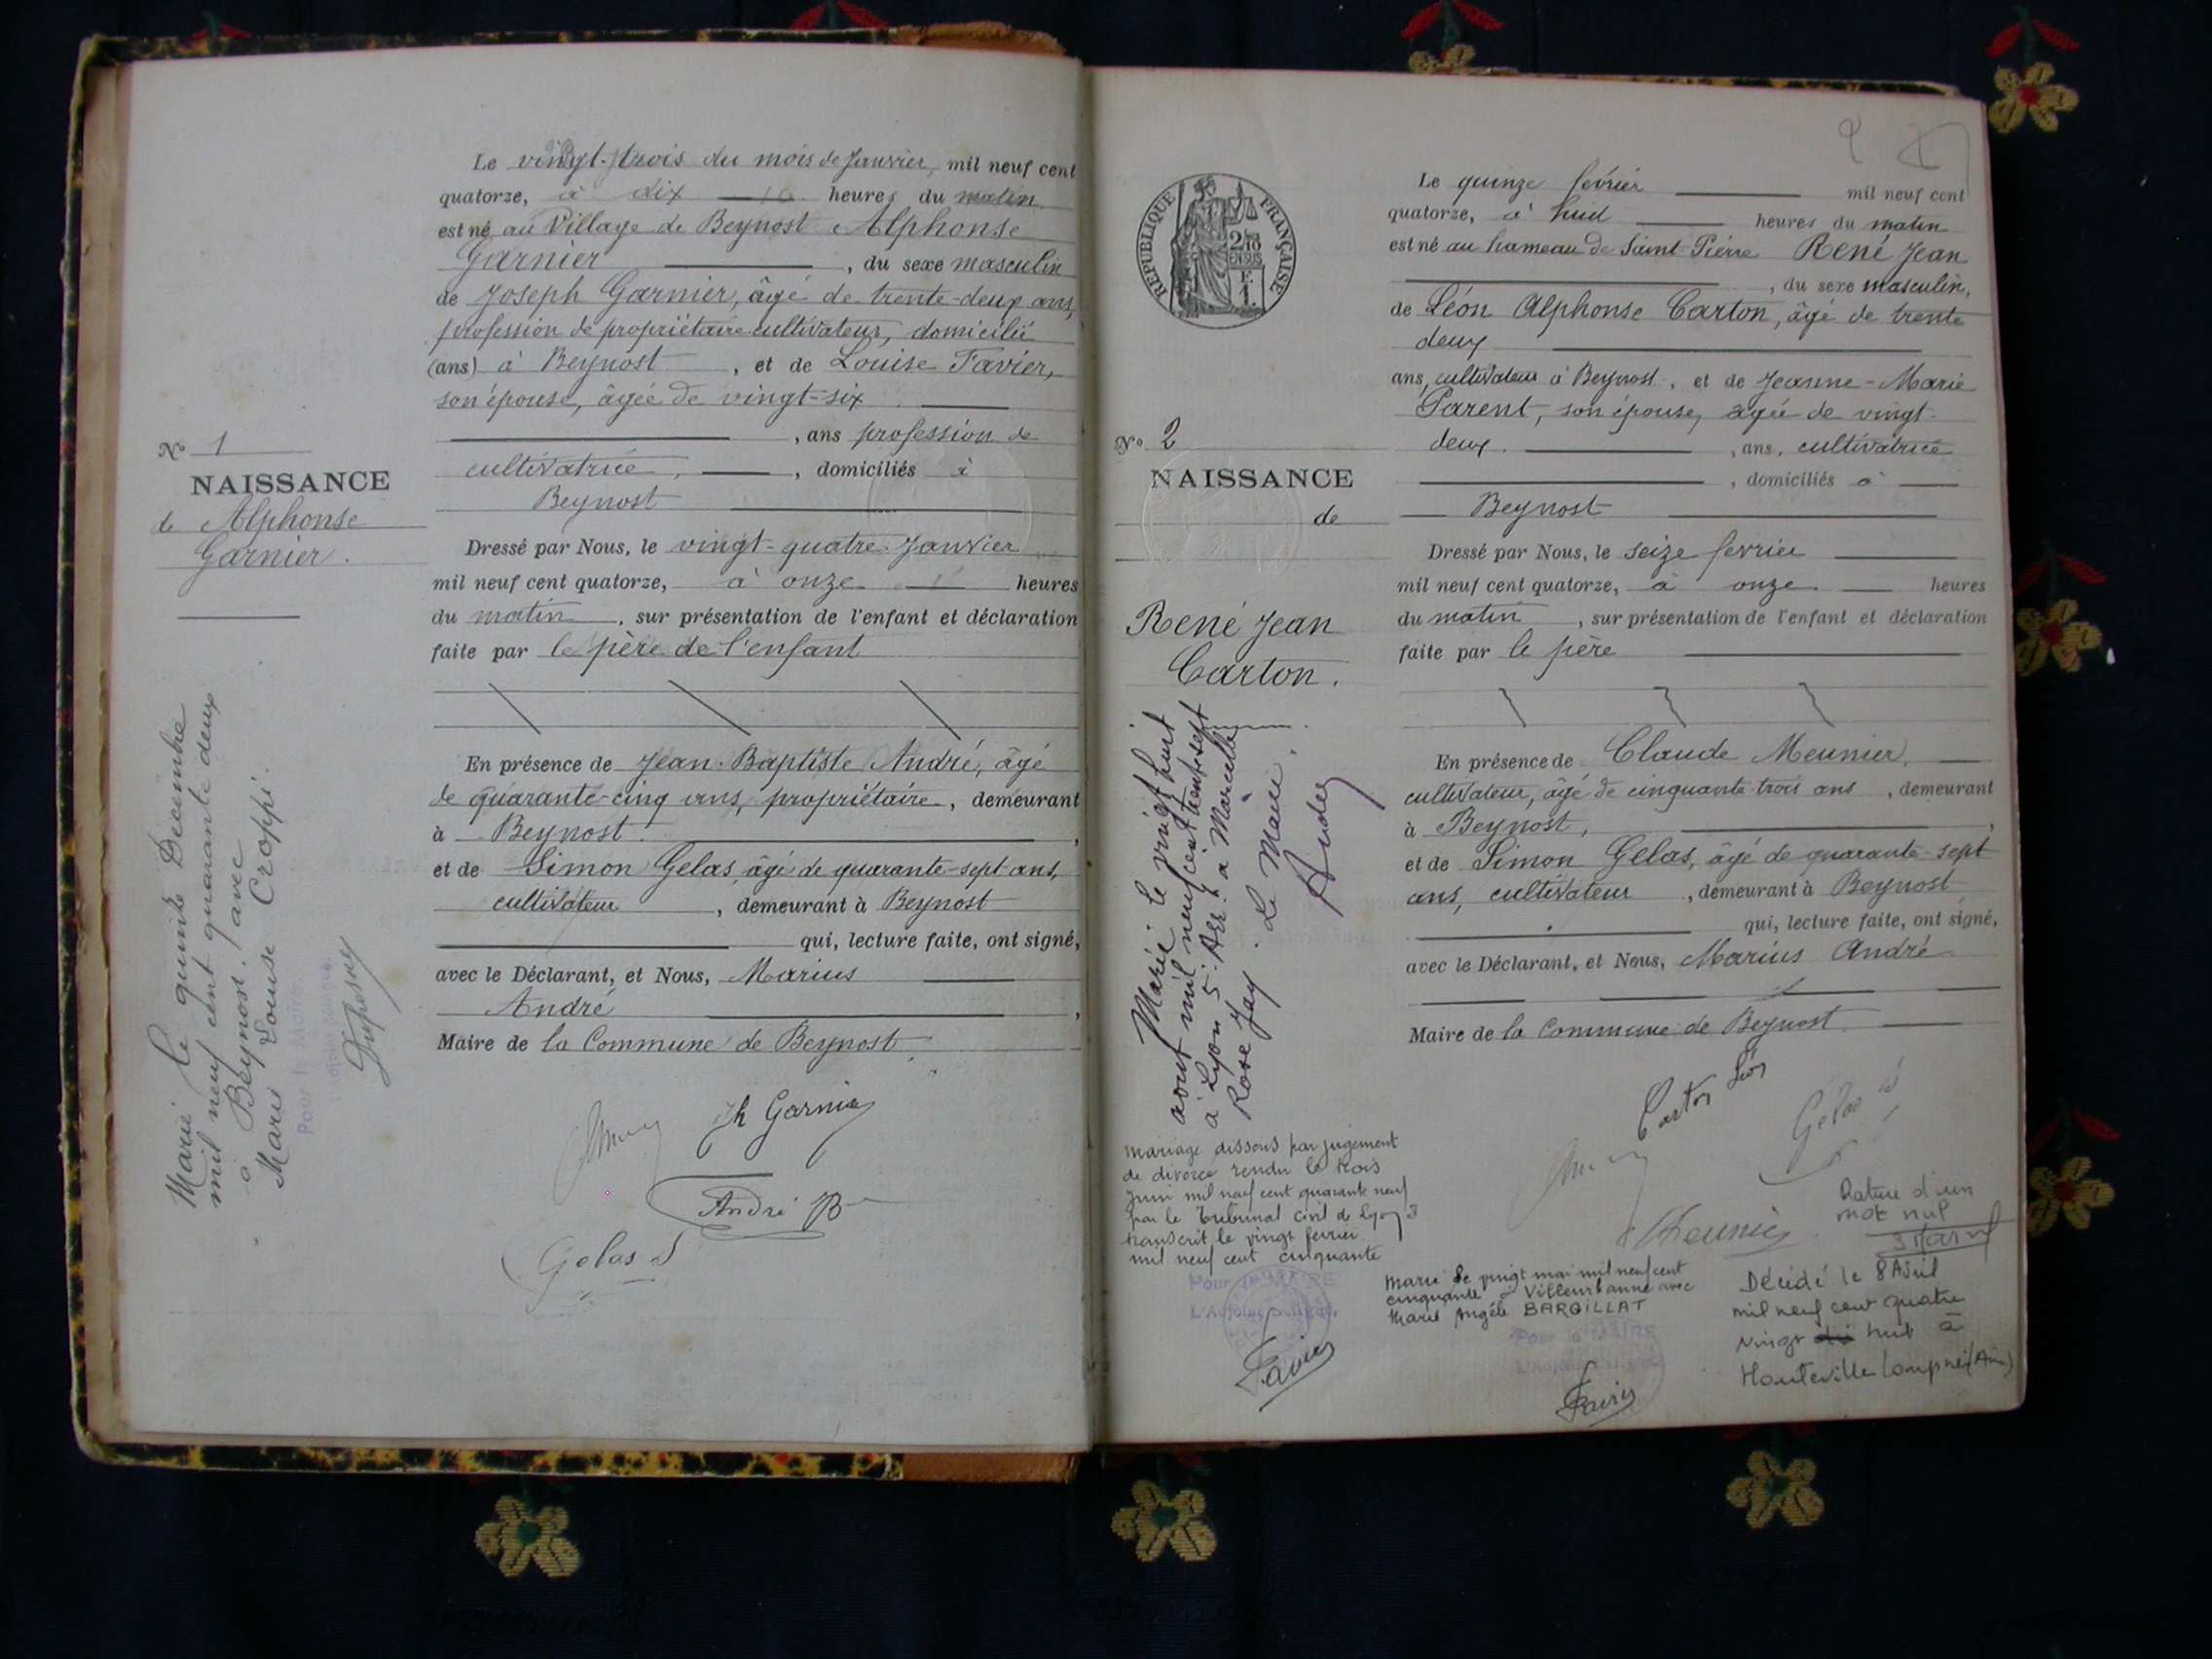 Le vingt-trois du mois de Janvier, mil neuf cent
quatorze, à dix 10 heures du matin
est né au Village de Beynost Alphonse
Garnier, du sexe masculin
de Joseph Garnier, âgé de trente-deux ans,
profession de propriétaire cultivateur, domicilié
(ans) à Beynost, et de Louise Favier,
son épouse, âgée de vingt-six
, ans profession de
cultivatrice, domiciliés à
Beynost
Dressé par Nous, le vingt-quatre Janvier
mil neuf cent quatorze, à onze heures
du matin, sur présentation de l'enfant et déclaration
faite par le père de l'enfant
En présence de Jean-Baptiste André, âgé
de quarante-cinq ans, propriétaire, demeurant
à Beynost.
et de Simon Gelas, âgé de quarante-sept ans,
cultivateur, demeurant à Beynost
qui, lecture faite, ont signé,
avec le Déclarant, et Nous, Marius
André,
Maire de la Commune de Beynost
Jh Garnier
André JB
Gelas S
No 1
NAISSANCE
de Alphonse
Garnier.
Marié le quinze Décembre
mil neuf cent quarante deux
à Beynost, avec
Marie Louise Croppi.
Pour le Maire,
RÉPUBLIQUE FRANÇAISE
2/10 EN SUS
F.
1.
No 2
NAISSANCE
de
René Jean
Carton.
Marié le vingt huit
août mil neuf cent trente sept
à Lyon 5e Arrt à Marcelle
Rose Jay. Le Maire,
Mariage dissous par jugement
de divorce rendu le trois
Juin mil neuf cent quarante neuf
par le Tribunal Civil de Lyon &
transcrit le vingt février
mil neuf cent cinquante
Pour le MAIRE
Favier
Le quinze février mil neuf cent
quatorze, à huit heures du matin
est né au hameau de Saint-Pierre René Jean
, du sexe masculin,
de Léon Alphonse Carton, âgé de trente
deux
ans, cultivateur à Beynost, et de Jeanne-Marie
Parent, son épouse, âgée de vingt-
deux, ans, cultivatrice
, domiciliés à
Beynost
Dressé par Nous, le seize fevrier
mil neuf cent quatorze, à onze heures
du matin, sur présentation de l'enfant et déclaration
faite par le père
En présence de Claude Meunier,
cultivateur, âgé de cinquante-trois ans, demeurant
à Beynost,
et de Simon Gelas, âgé de quarante-sept
ans, cultivateur, demeurant à Beynost
qui, lecture faite, ont signé,
avec le Déclarant, et Nous, Marius André
Maire de la Commune de Beynost
Carton Léon
Gelas S
Meunier
Rature d'un
mot nul
Marié le vingt mai mil neuf cent
cinquante à Villeurbanne avec
Marie Angèle BARGILLAT
Pour le MAIRE
Favier
Décédé le 8 Avril
mil neuf cent quatre
vingt huit à
Hauteville Lompnes (Ain)